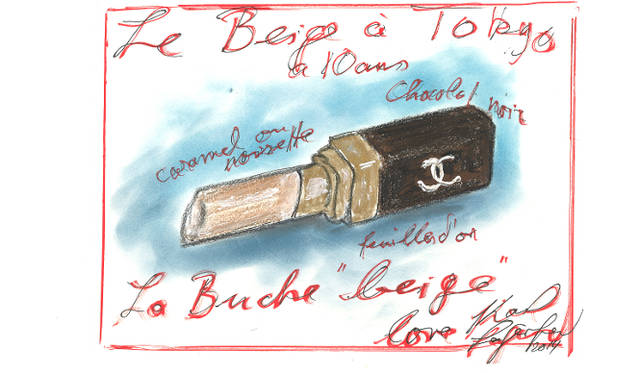 Le Beige à Tokyo
a 10 ans
Chocolat noir
caramel ou
noisette
feuilles d'or
La Buche "beige"
love Karl
Lagerfeld
2014